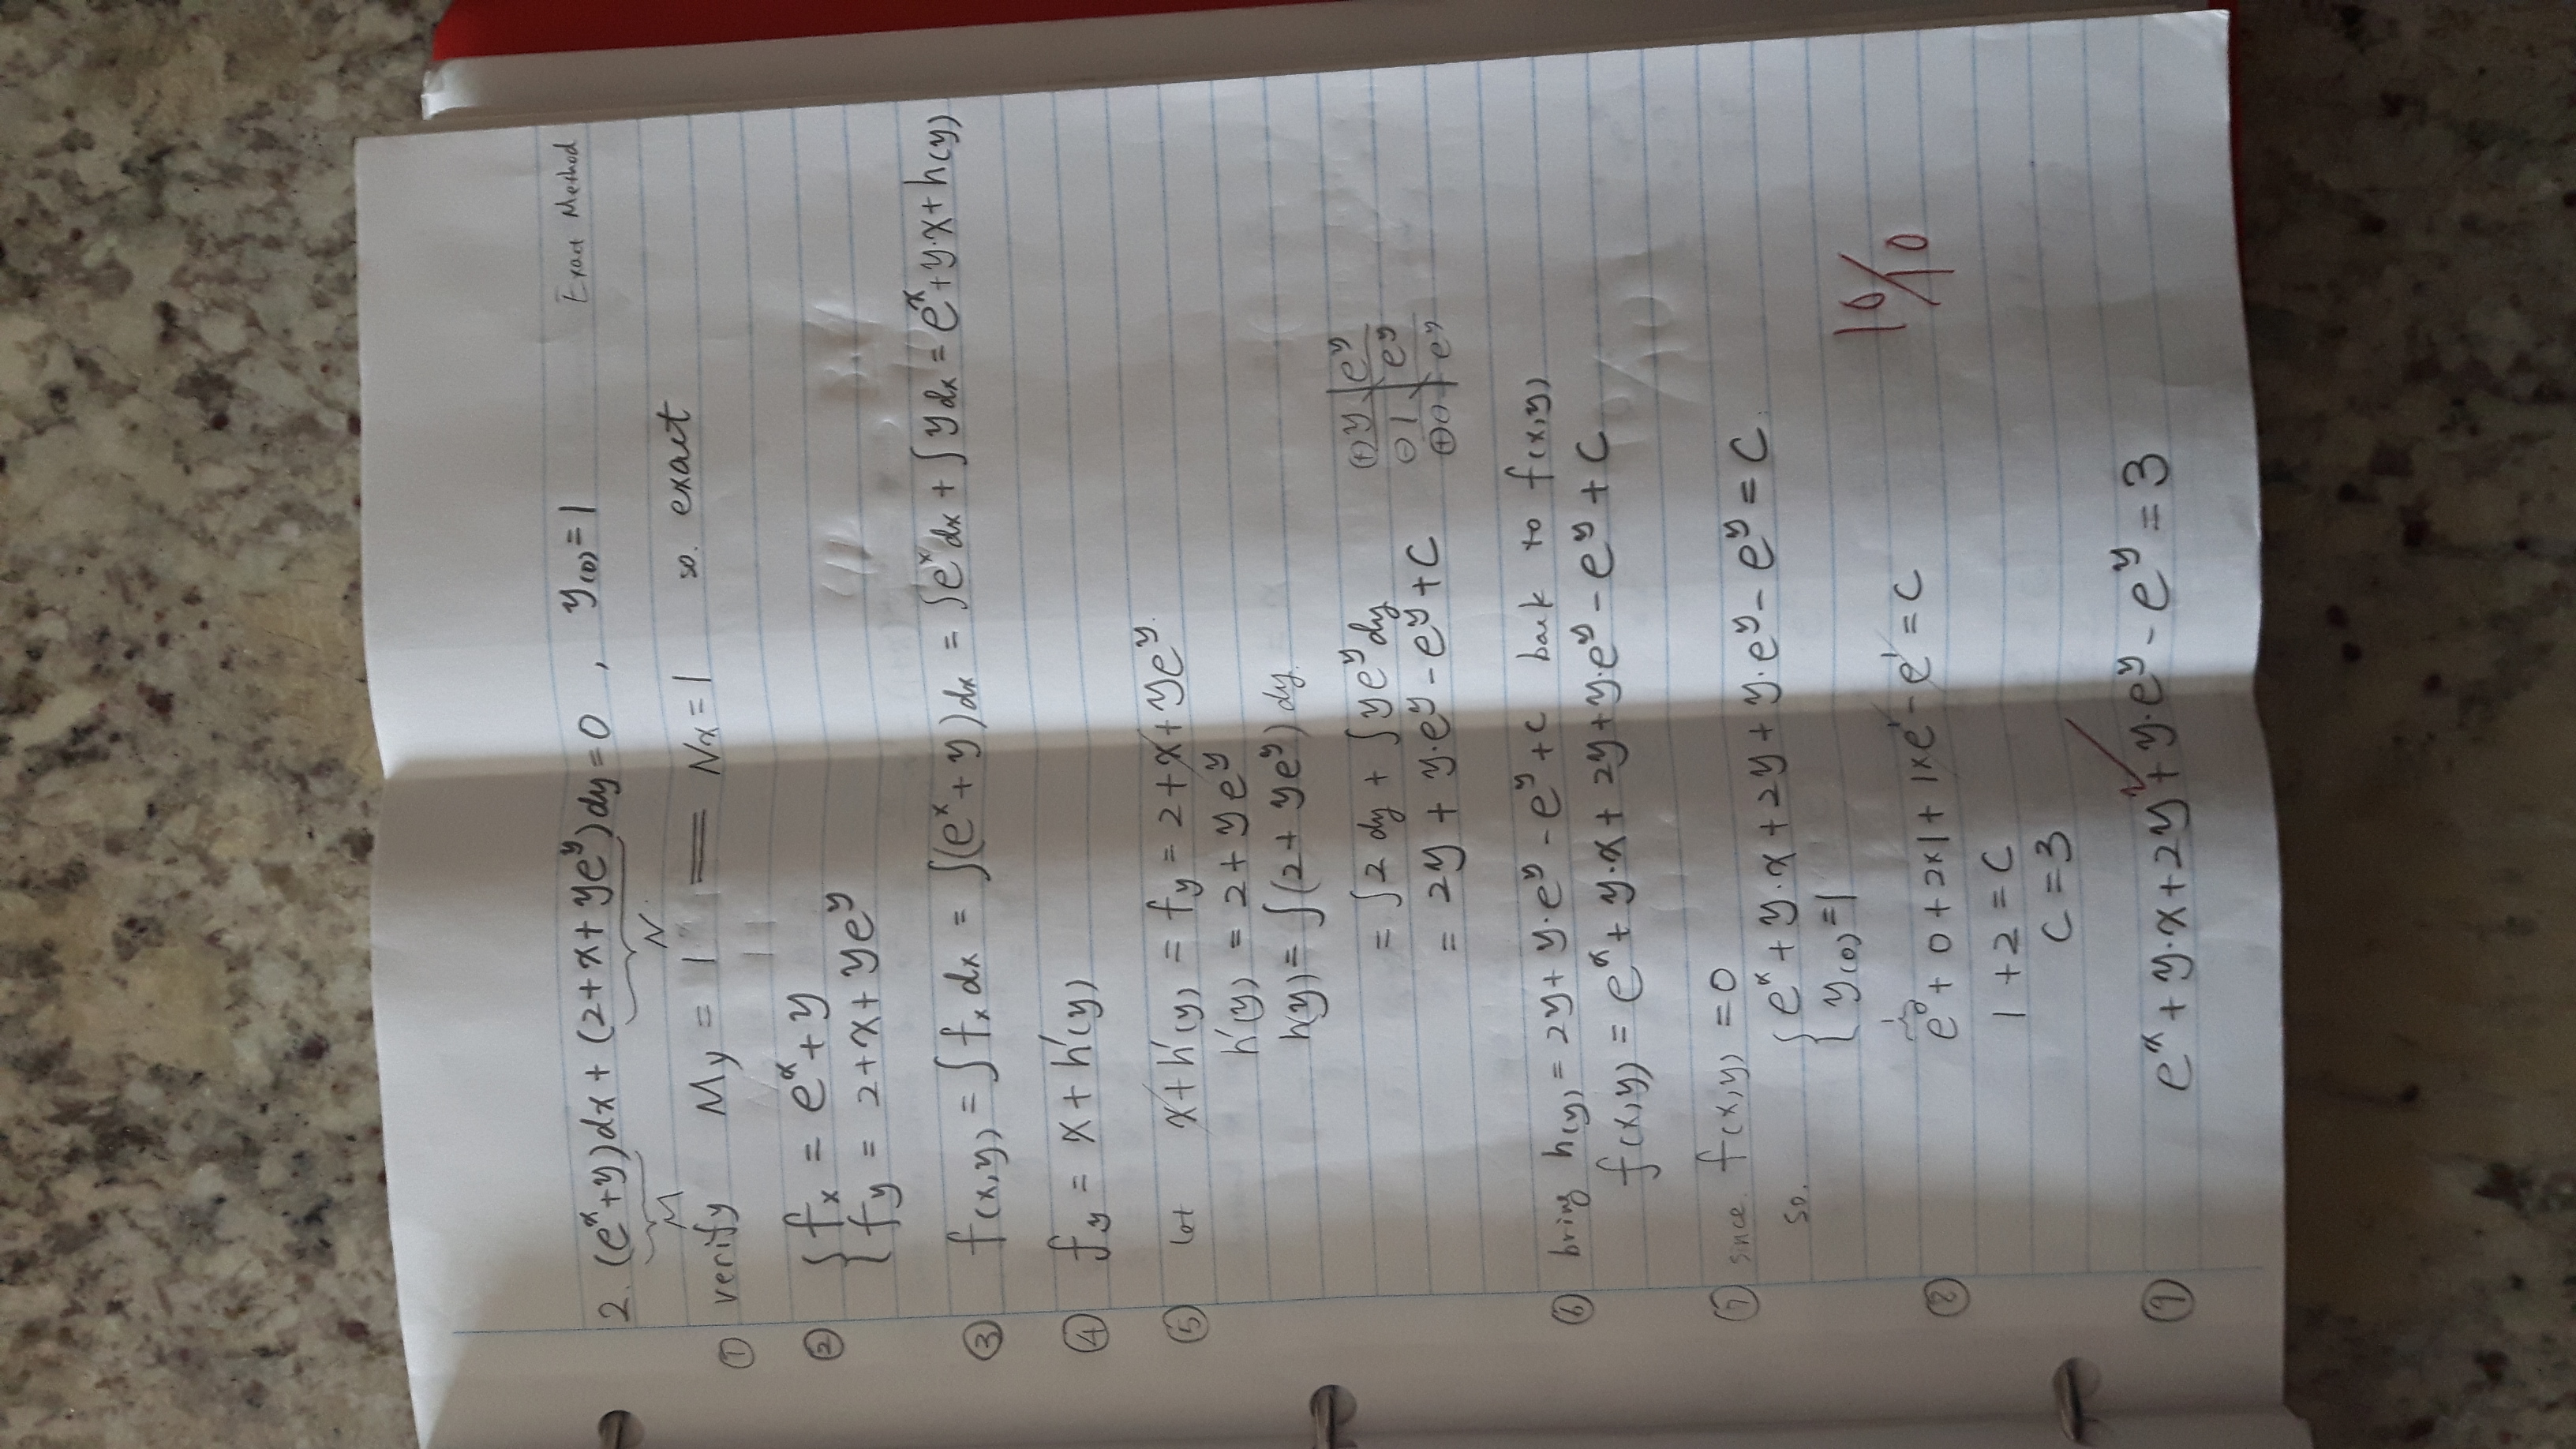 Exact Method
2. (eˣ+y)dx + (2+x+yeʸ)dy=0 , y(0)=1
M N
verify My = 1 = Nx=1 so. exact
①
② { fx = eˣ+y
{ fy = 2+x+yeʸ
③ f(x,y) = ∫ fx dx = ∫(eˣ+y)dx = ∫eˣdx + ∫ydx = eˣ+y·x+h(y)
④ fy = x+h'(y)
⑤ let x+h'(y) = fy = 2+x+yeʸ.
h'(y) = 2+yeʸ
h(y) = ∫(2+yeʸ)dy.
= ∫2dy + ∫yeʸdy
⊕ y eʸ
⊖ 1 eʸ
⊕ 0 eʸ
= 2y + y·eʸ - eʸ + C
⑥ bring h(y) = 2y+y·eʸ-eʸ+c back to f(x,y)
f(x,y) = eˣ+y·x+2y+y·eʸ-eʸ+C
⑦ since f(x,y) = 0
so. { eˣ+y·x+2y+y·eʸ-eʸ=C.
{ y(0)=1
⑧ e⁰+0+2x1+1xe¹-e¹=C
1
10/10
1+2=C
C=3
⑨ eˣ+y·x+2y+y·eʸ-eʸ=3